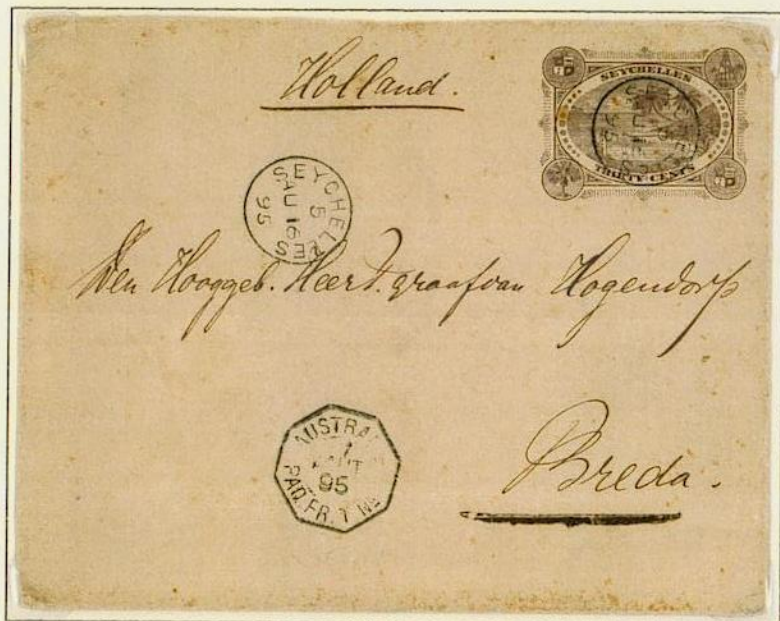 Holland.
SEYCHELLES
THIRTY CENTS
SEYCHELLES
5
AU 16
95
Den Hooggeb. Heer D. graaf van Hogendorp
AUSTRAL
AOUT
95
PAQ. FR. T No
Breda.